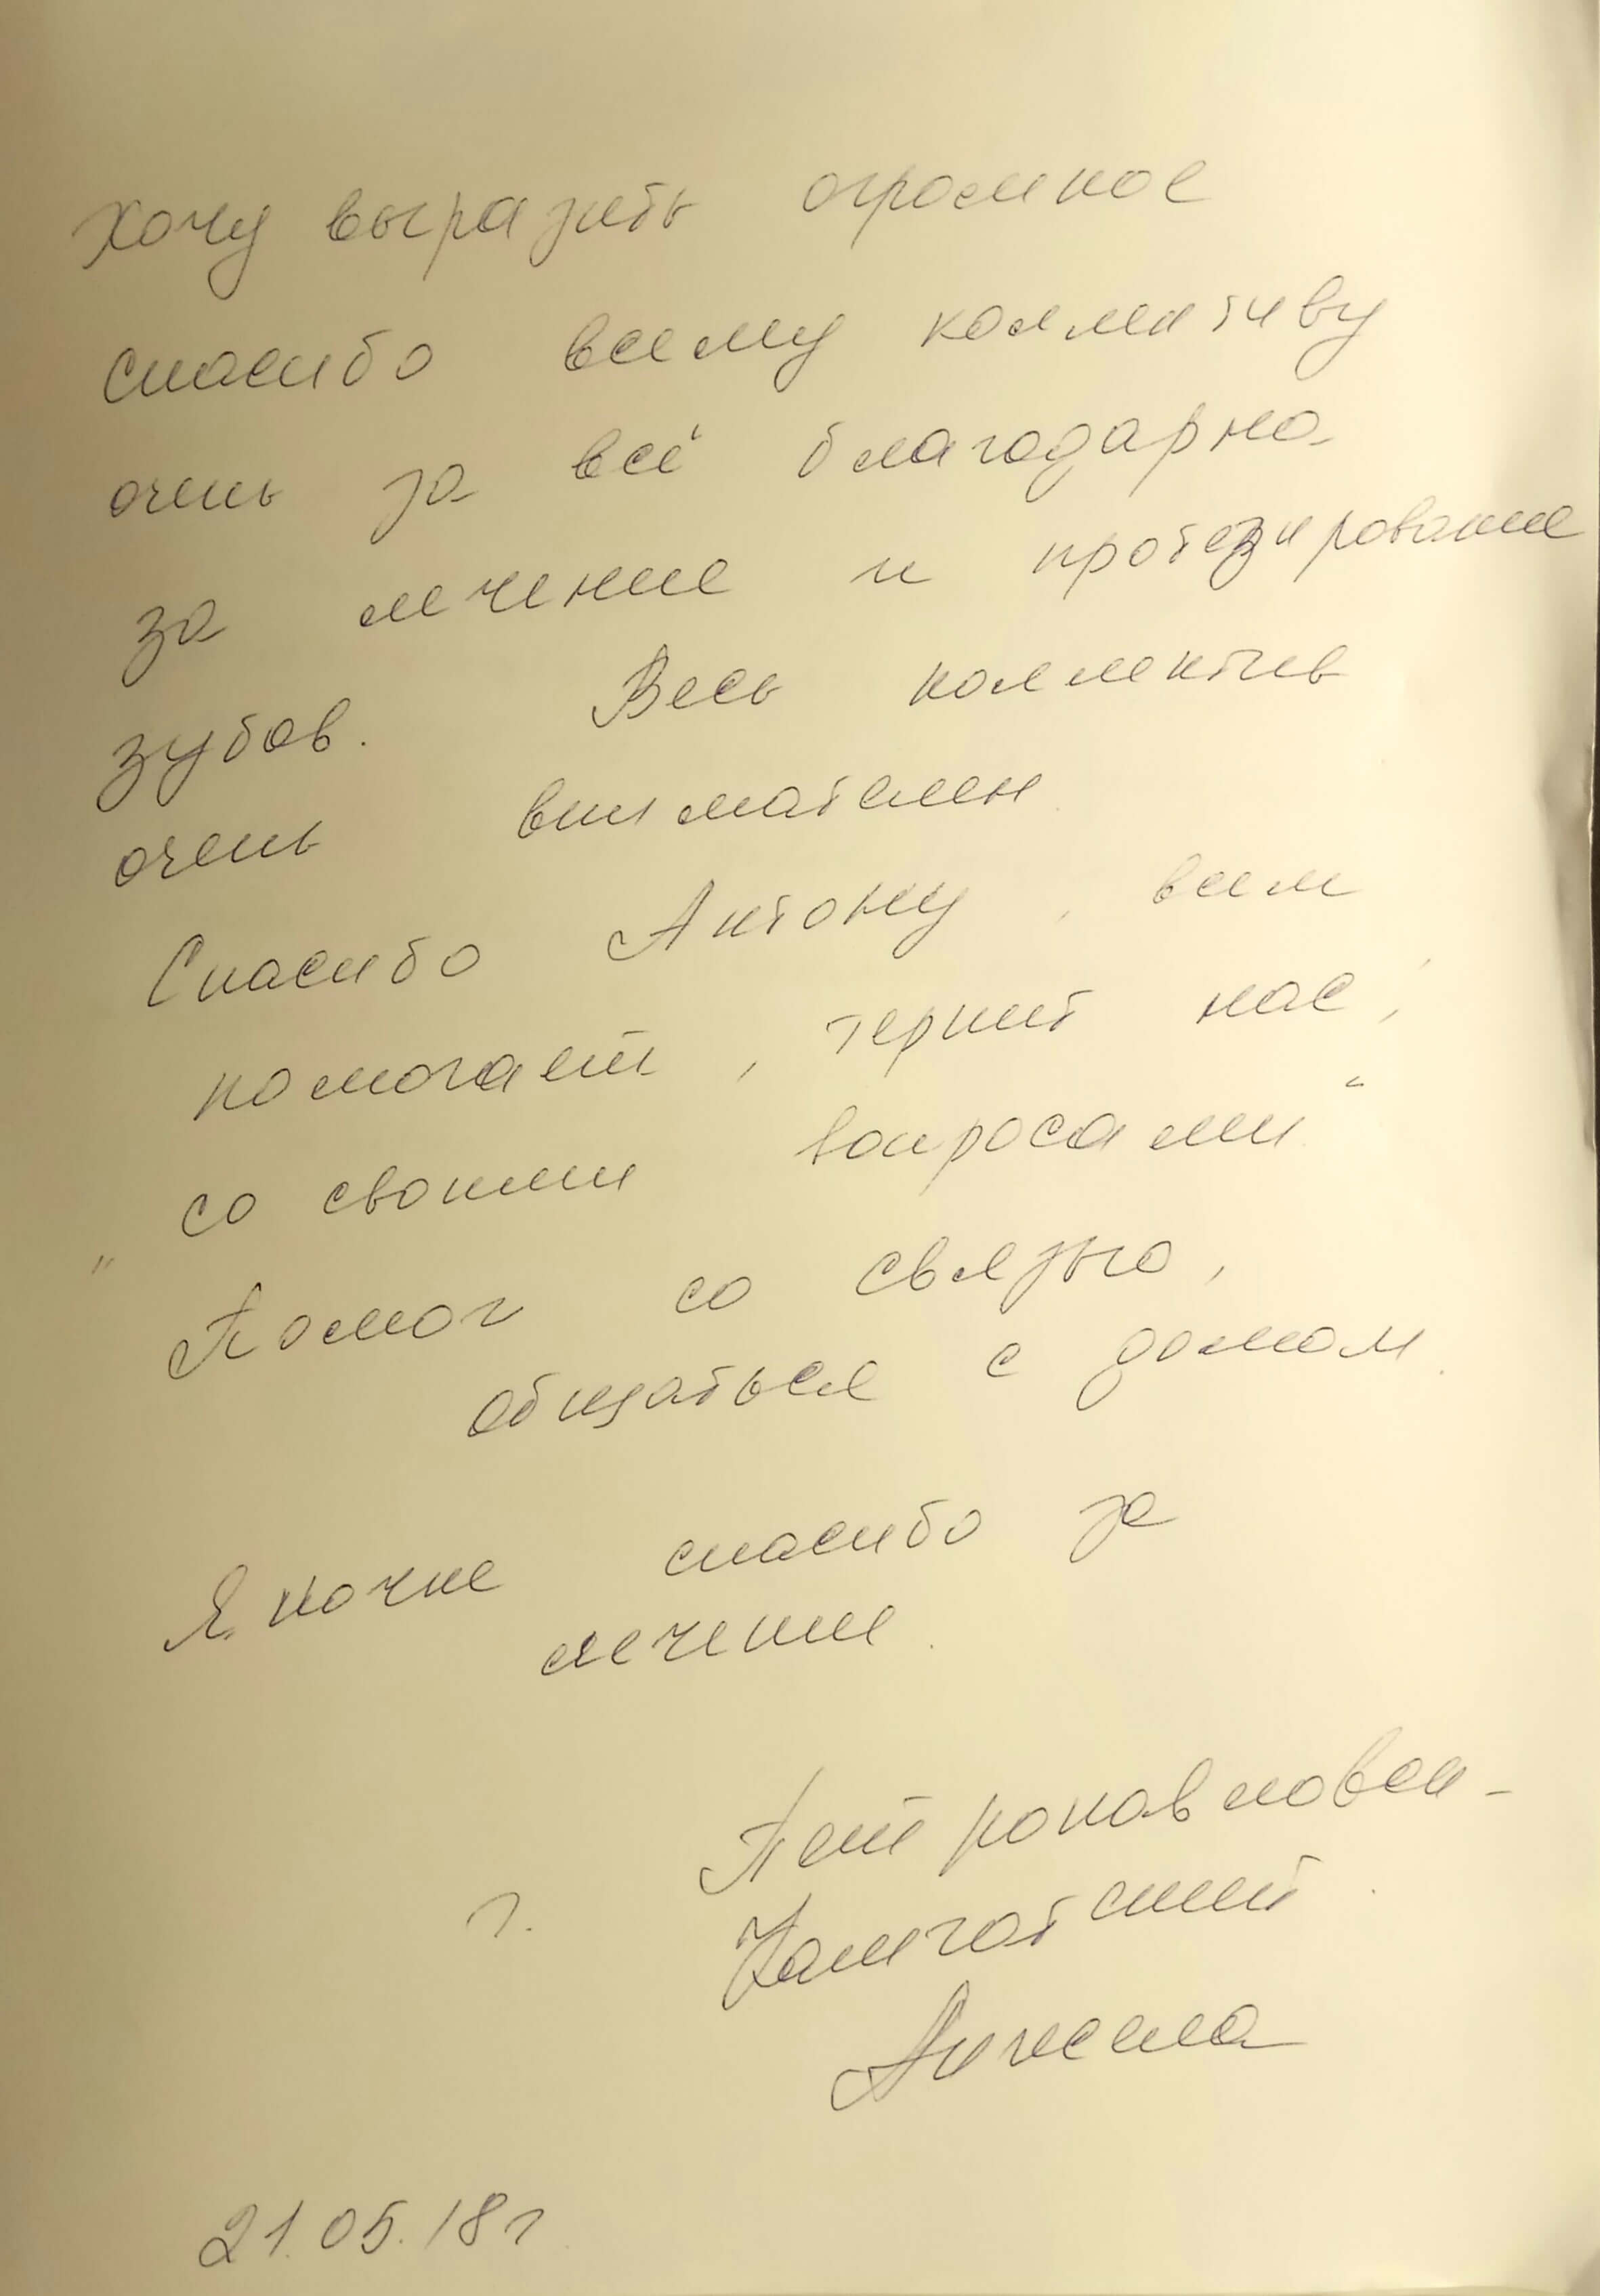 Хочу выразить огромное
спасибо всему коллективу
очень за всё благодарна
за лечение и протезирование
зубов. Весь коллектив
очень внимателен
Спасибо Антону, всем
помогает, терпит нас,
со своими вопросами"
" Помог со связью,
общаться с домом.
спасибо за
лечение.
г. Петропавловск-
Камчатский.
Анжела
21.05.18г